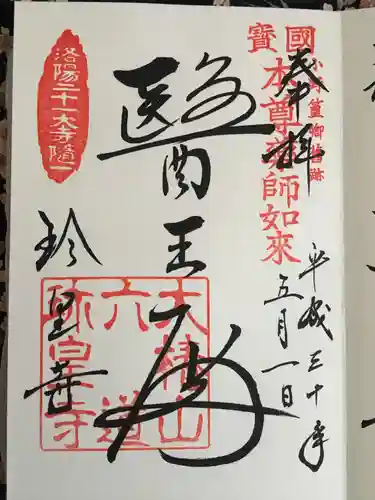 國寶
小野篁卿旧跡
本尊薬師如來
奉拝
平成三十年
五月一日
醫王殿
洛陽二十一大寺随一
珍皇寺
大椿山
六道
珍皇寺